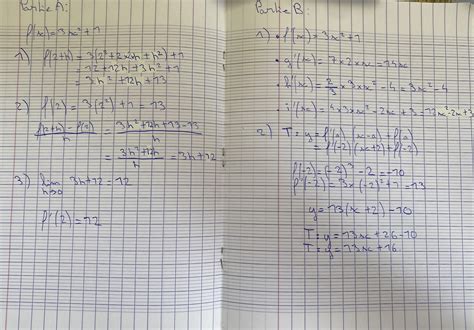 Partie A:
f(x)=3x²+1
1) f(2+h) = 3(2²+2×2×h+h²)+1
= 12+12h+3h²+1
= 3h²+12h+13
2) f(2) = 3(2²)+1 = 13
(f(2+h)-f(2))/h = (3h²+12h+13-13)/h
= (3h²+12h)/h = 3h+12
3) lim h→0 3h+12 = 12
f'(2) = 12
Partie B:
1) • f'(x) = 3x²+1
• g'(x) = 7×2×x = 14x
• h'(x) = 2/3 × 3×x² - 4 = 2x² - 4
• i'(x) = 4×3×x² - 2x + 3 = 12x² - 2x + 3
2) T: y = f'(a)(x-a) + f(a)
= f'(-2)(x+2) + f(-2)
f(-2) = (-2)³ - 2 = -10
f'(-2) = 3×(-2)² + 1 = 13
y = 13(x+2) - 10
T: y = 13x + 26 - 10
T: y = 13x + 16